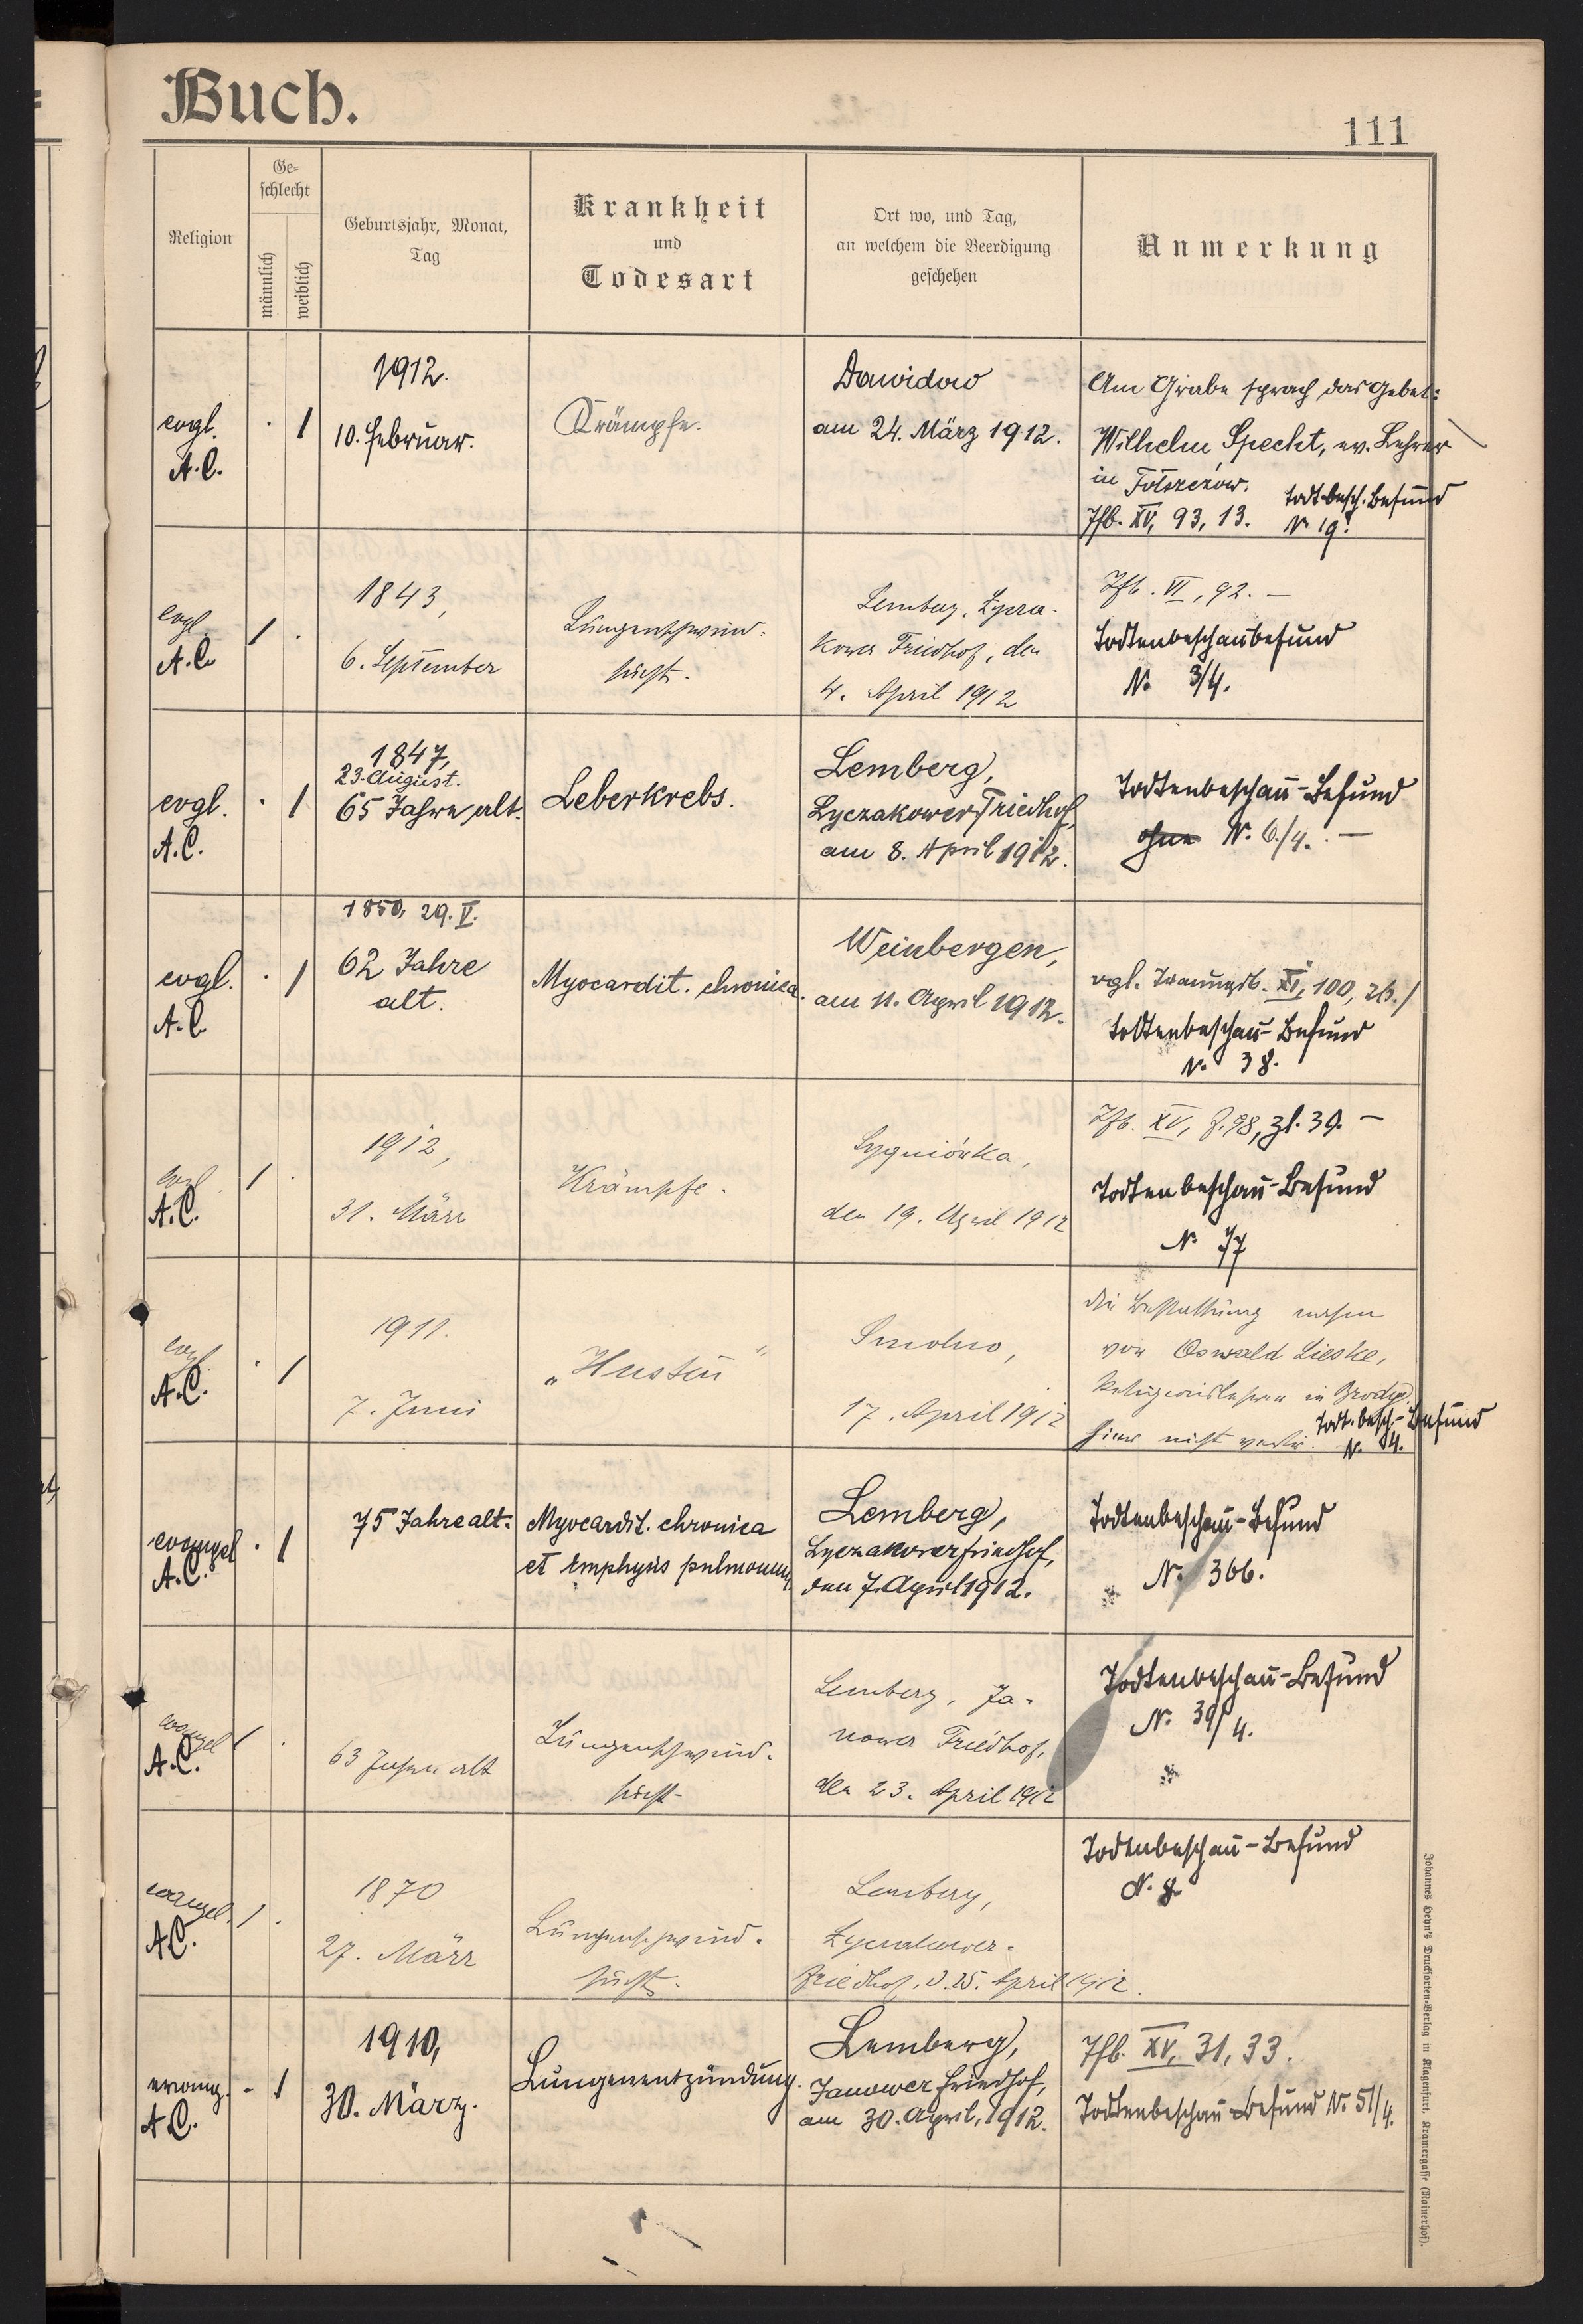 Buch.
111
Religion
Ge-
schlecht
männlich
weiblich
Geburtsjahr, Monat,
Tag
Krankheit
und
Todesart
Ort wo, und Tag,
an welchem die Beerdigung
geschehen
Anmerkung
evgl.
A.C.
. 1
1912.
10. Februar.
Krämpfe.
Dawidow
am 24. März 1912.
Am Grabe sprach das Gebet:
Wilhelm Specht, ev. Lehrer
in
Tfb. XV, 93, 13.
Todt.besch.Befund
N. 19.
evgl.
A.C.
1 .
1843,
6. September
Lungenschwind-
sucht.
Lemberg,
kower Friedhof, den
4. April 1912
Tfb. VI, 92. –
Todtenbeschaubefund
N. 3/4.
evgl.
A.C.
. 1
1847,
23. August.
65 Jahre alt.
Leberkrebs.
Lemberg,
Lyczakower Friedhof,
am 8. April 1912.
Todtenbeschau-Befund
ohne N. 6./4. –
evgl.
A.C.
. 1
1850, 29. V.
62 Jahre
alt.
Myocardit. chronica.
Weinbergen,
am 11. April 1912.
vgl. Trauungsb. XI, 100,
Todtenbeschau-Befund
N. 38.
evgl.
A.C.
1 .
1912,
31. März
Krämpfe.
Sygniówka,
den 19. April 1912
Tfb. XV, S. 98, Zl. 39. –
Todtenbeschau-Befund
N. 77
evgl.
A.C.
. 1
1911.
7. Juni
„Husten"
Smolno,
17. April 1912
die Bestattung
von Oswald Lieske,
Religionslehrer in Brody.
hier nicht
Todt.besch.-Befund
N. 84.
evangel
A.C.
. 1
75 Jahre alt.
Myocardit. chronica
et emphysis pulmonum
Lemberg,
Lyczakowerfriedhof,
den 7. April 1912.
Todtenbeschau-Befund
N. 366.
evangel
A.C.
1 .
63 Jahre alt
Lungenschwind-
sucht-
Lemberg, Ja-
nower Friedhof,
den 23. April 1912
Todtenbeschau-Befund
N. 39/4.
evangel.
A.C.
1 .
1870
27. März
Lungenschwind-
sucht.
Lemberg,
Lyczakower-
Friedhof, d. 25. April 1912.
Todtenbeschau-Befund
N. 8
evang.
A.C.
- 1
1910,
30. März.
Lungenentzündung.
Lemberg,
Janower Friedhof,
am 30. April, 1912.
Tfb. XV, 31, 33.
Todtenbeschau-Befund N. 51/4.
Johannes Heyn's Drucksorten-Verlag in Klagenfurt, Kramergasse (Rainerhof).